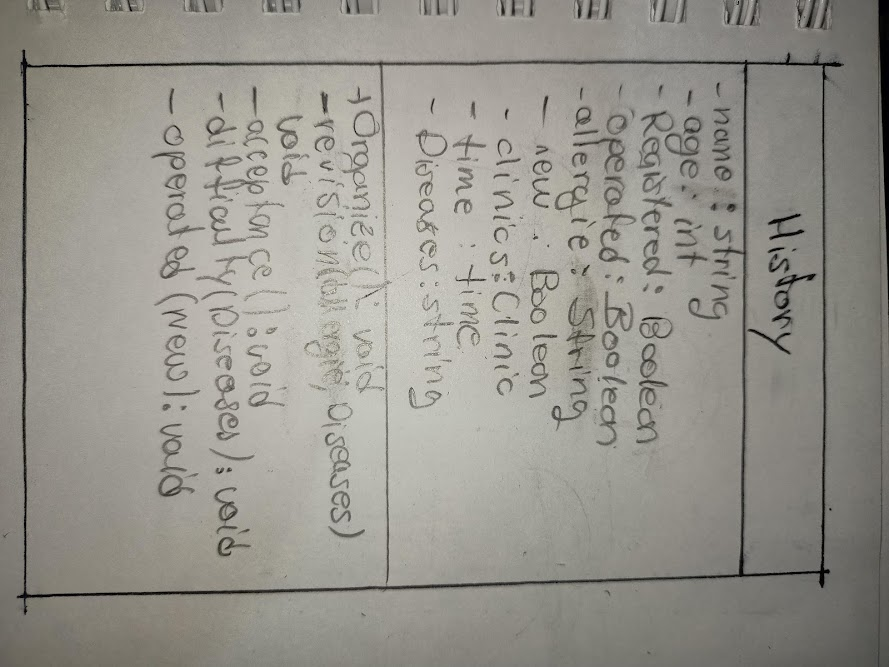 History
- name : string
- age : int
- Registered : Boolean
- operated : Boolean
- allergie : String
- new : Boolean
- clinics : Clinic
- time : time
- Diseases : string
+ Organize() : void
- revision(allergie, Diseases)
void
- acceptance() : void
- difficulty(Diseases) : void
- operated (new) : void